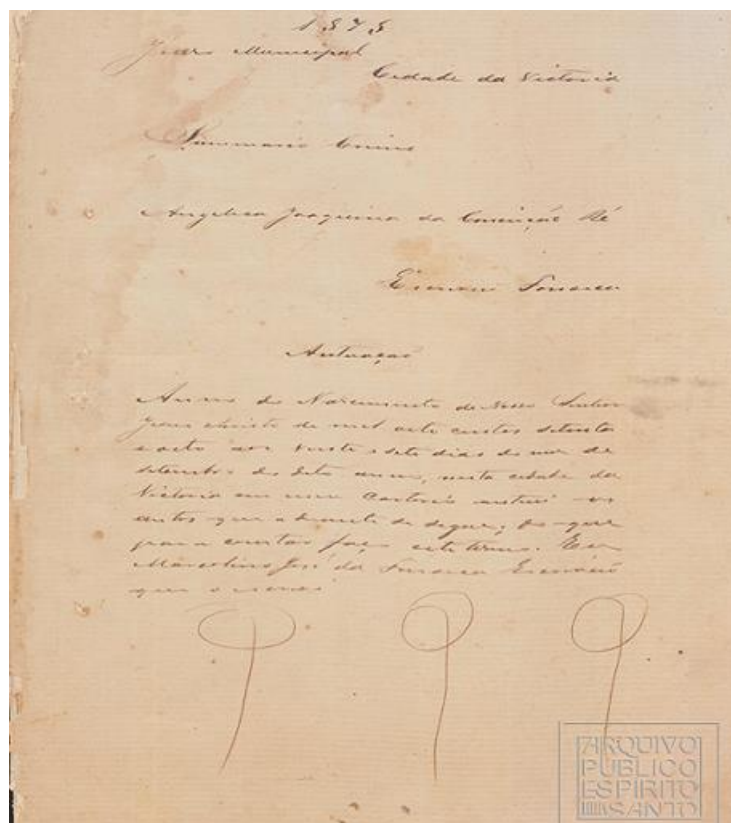 1878
Juizo Municipal
Cidade da Victoria
Summario Crime
Angelica Joaquina da Conceição Ré
Escrivão Fonseca
Autuação
Anno do Nascimento de Nosso Senhor
Jesus Christo de mil oito centos setenta
e oito aos vinte e sete dias do mez de
setembro do dito anno, nesta cidade da
Victoria em meu Cartorio autuei os
autos que adiante se segue; do que
para constar faço este termo. Eu
Marcolino José da Fonseca Escrivão
que o escrevi
ARQUIVO
PUBLICO
ESPIRITO
SANTO